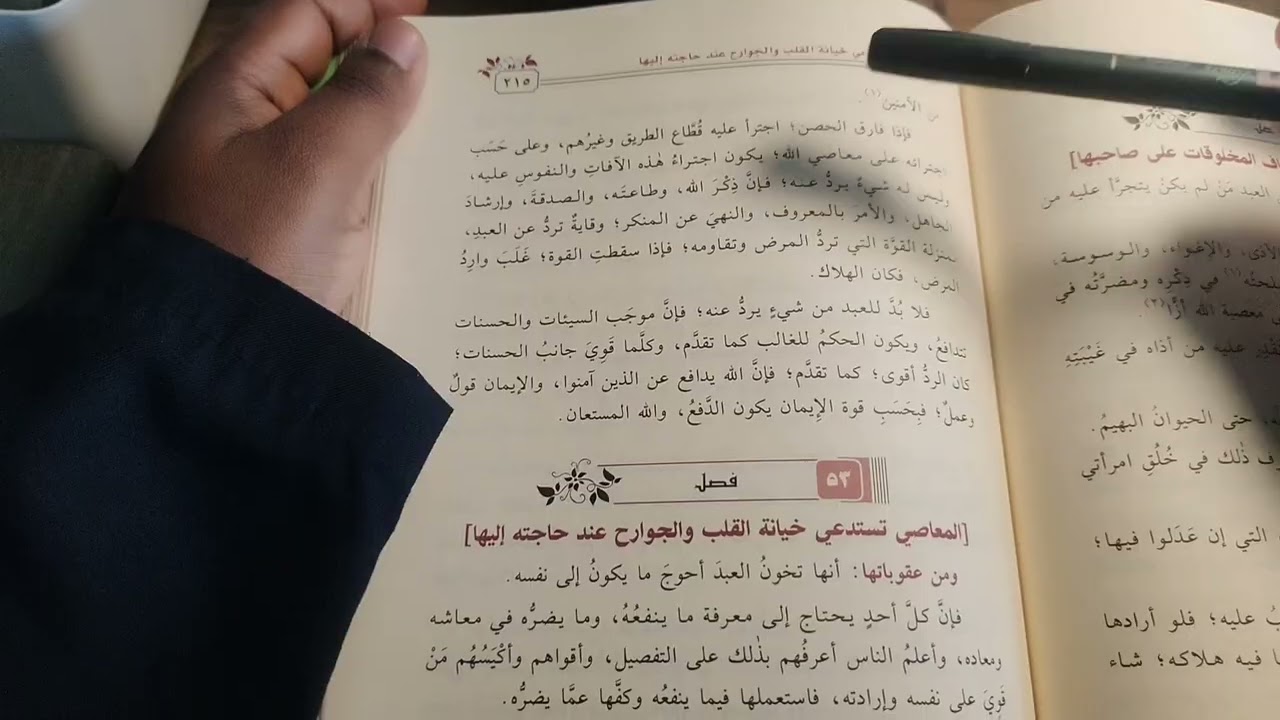 في خيانة القلب والجوارح عند حاجته إليها
٢١٥
من الآمنين(١).
فإذا فارق الحصن؛ اجترأ عليه قُطَّاع الطريق وغيرُهم، وعلى حَسَب
اجترائه على معاصي الله؛ يكون اجتراءُ هٰذه الآفاتِ والنفوسِ عليه،
وليس له شيءٌ يردُّ عنه؛ فإنَّ ذِكْرَ الله، وطاعتَه، والصدقةَ، وإرشادَ
الجاهل، والأمرَ بالمعروف، والنهيَ عن المنكر؛ وقايةٌ تردُّ عن العبدِ،
بمنزلة القوَّة التي تردُّ المرض وتقاومه؛ فإذا سقطتِ القوة؛ غَلَبَ وارِدُ
المرض، فكان الهلاك.
فلا بُدَّ للعبد من شيءٍ يردُّ عنه؛ فإنَّ موجَب السيئات والحسنات
تتدافعُ، ويكون الحكمُ للغالب كما تقدَّم، وكلَّما قَوِيَ جانبُ الحسنات؛
كان الردُّ أقوى؛ كما تقدَّم؛ فإنَّ الله يدافع عن الذين آمنوا، والإيمان قولٌ
وعملٌ؛ فبِحَسَبِ قوة الإيمان يكون الدَّفعُ، والله المستعان.
٥٣
فصل
[المعاصي تستدعي خيانة القلب والجوارح عند حاجته إليها]
ومن عقوباتها: أنها تخونُ العبدَ أحوجَ ما يكونُ إلى نفسه.
فإنَّ كلَّ أحدٍ يحتاج إلى معرفة ما ينفعُهُ، وما يضرُّه في معاشه
ومعاده، وأعلمُ الناس أعرفُهم بذٰلك على التفصيل، وأقواهم وأكْيَسُهُم مَنْ
قَوِيَ على نفسه وإرادته، فاستعملها فيما ينفعُه وكفَّها عمَّا يضرُّه.
المخلوقات على صاحبها]
العبد مَنْ لم يكنْ يتجرَّأ عليه من
والإغواء، والوسوسة،
(١) في ذِكْرِه ومضرَّتُه في
معصية الله أزًّا(٢).
عليه من أذاه في غَيْبَتِهِ
حتى الحيوانُ البهيمُ.
ذٰلك في خُلُقِ امرأتي
التي إن عَدَلوا فيها؛
عليه؛ فلو أرادها
فيه هلاكه؛ شاء